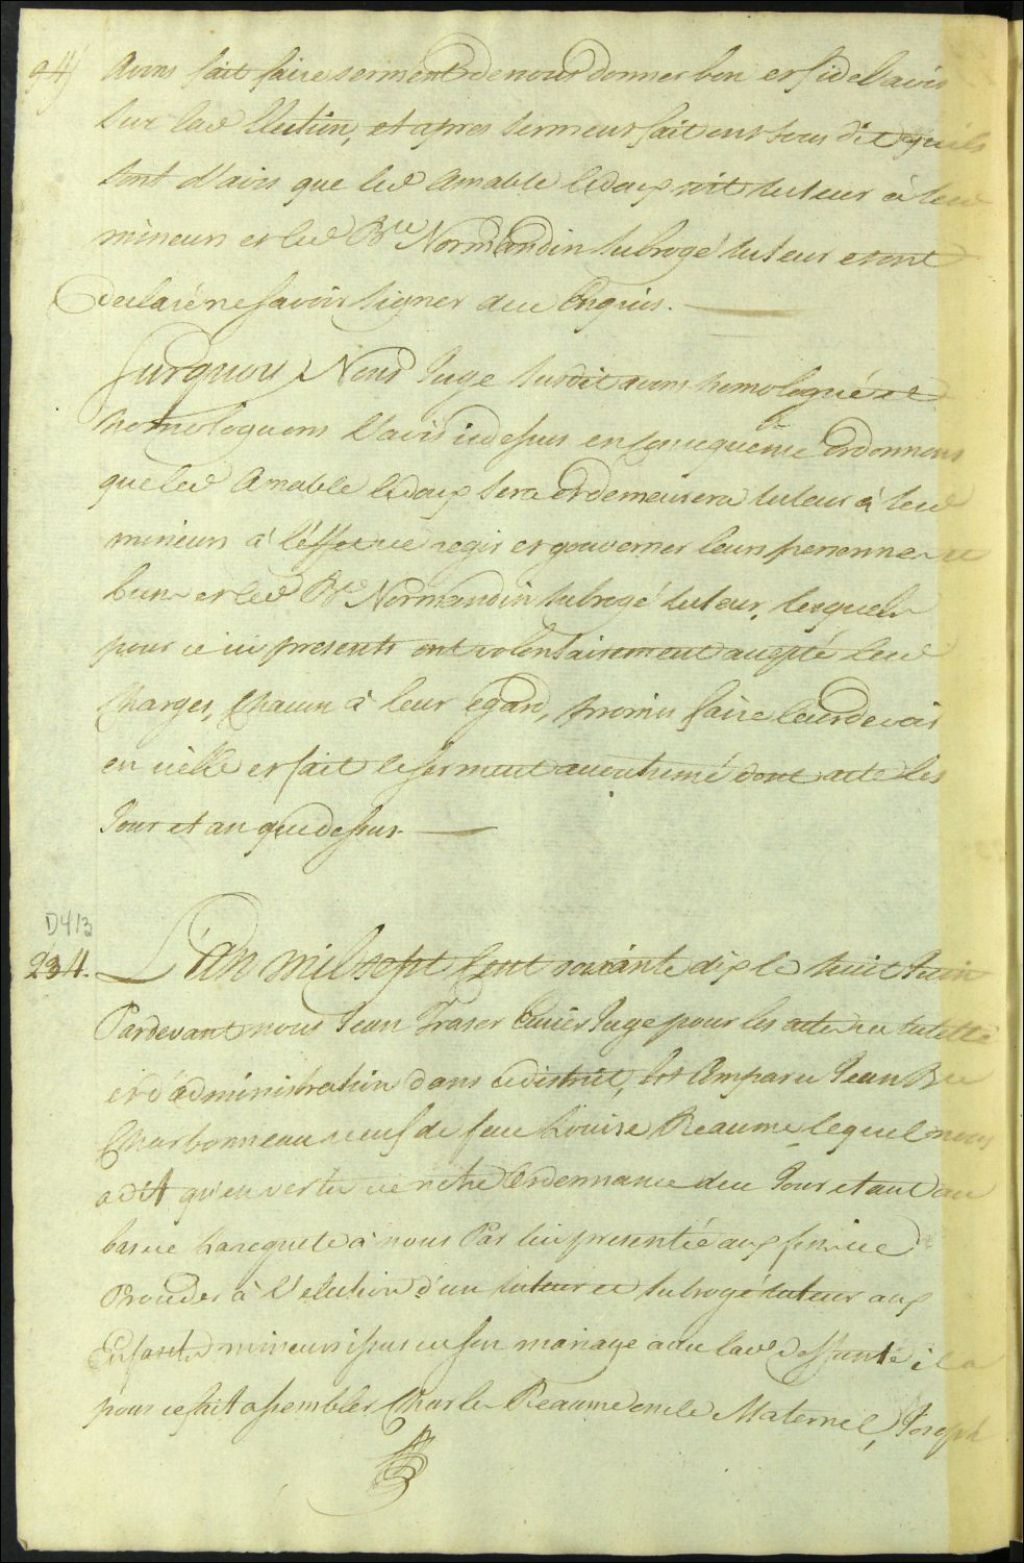 94) Avons fait faire serment de nous donner bon et fidel avis
sur lad Election, et apres serment fait ont tous dit qu'ils
sont d'avis que led Amable Ledoux soit tuteur à sesd
mineurs et led Bte Normandin subrogé tuteur et ont
Declaré ne savoir signer de ce Enquis.
Surquoy Nous Juge susdit avons homologué et
homologuons L'avis cidessus en consequence Ordonnons
que led Amable Ledoux sera et demeurera tuteur à sesd
mineurs à l'effet de regir et gouverner leurs personnes et
biens et led Bte Normandin subrogé tuteur, lesquels
pour ce ici presents ont volontairement accepté lesd
Charges, Chacun à leur égard, promis faire leur devoir
en icelle et fait le serment accoutumé dont acte les
Jour et an que dessus.
D413
234. L'an mil sept Cent soixante dix le huit Juin
Pardevant nous Jean Fraser Ecuier Juge pour les actes de tutelle
et d'administration dans ce district, est Comparu Jean Bte
Charbonneau veuf de feue Louise Reaume lequel nous
a dit qu'en vertu de notre Ordonnance de ce Jour etant au
bas de la requete à nous Par lui presentée aux fins de
Proceder à l'election d'un tuteur et subrogé tuteur aux
Enfants mineurs issus de son mariage avec lad deffunte il a
pour ce fait assembler Charles Reaume oncle Maternel, Joseph